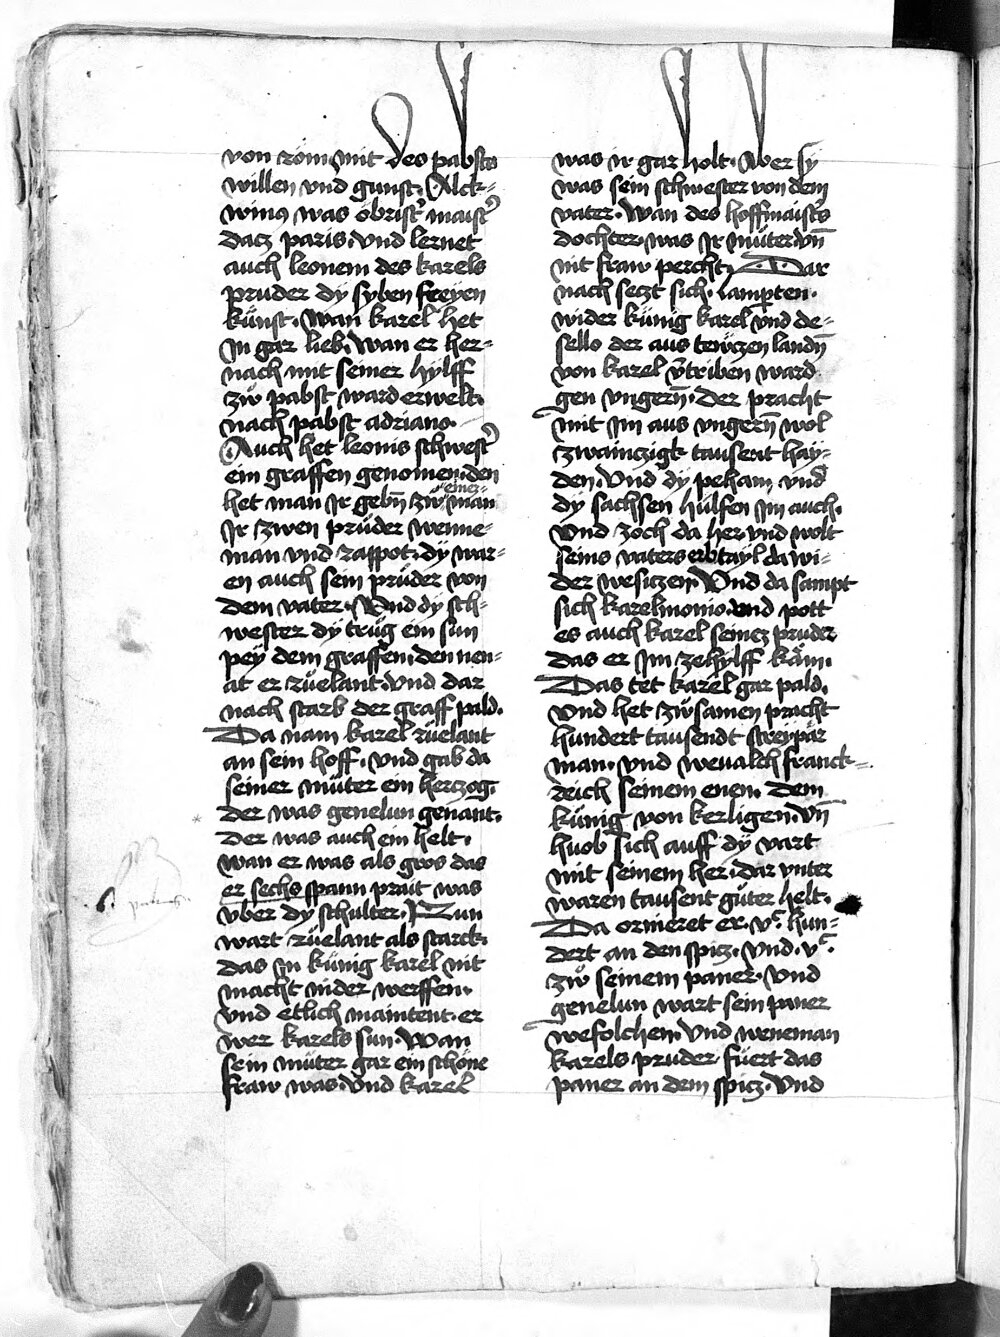 von rom mit des pabsts
willen vnd gunst. Alck-
winus was obrist' maist'
dacz paris. vnd lernet
auch leonem des karels
pruder dy syben freyen
künst. Wan karel het
In gar lieb. Wan er her-
nach mit seiner hylff
zw pabst ward erwelt.
nach pabst adriano.
Auch het leonis schwest'
ein graffen genomen. den
het man Jr gebn̄ zw einez man
Jr zwen prüder wenne-
man vnd rappot. dy war-
en auch sein prüder von
dem vater. Vnd dy sch-
wester dy trüg ein sun
pey dem graffen. den nen-
at er rüelant. Vnd dar
nach starb der graff pald.
Da nam karel rüelant
an sein hoff. vnd gab da
seiner müter ein herczog.
der was genelun genant.
Der was auch ein helt.
wan er was als gros das
er sechs spann prait was
vber dy schulter. Nun
wart rüelant als starck.
das In künig karel nit
macht nider werffen.
Vnd etlich maintent. er
wer karels sun. Wan
sein müter gar ein schöne
fraw was. Vnd karel
was ir gar holt. Aber sy
was sein schwester von dem
vater. Wan des hoffmaist's
dochter. was Jr müter. vn̄
nit fraw percht. Dar
nach seczt sich. lamparten.
wider künig karel vnd de-
sello der aus tewczen landn̄
von karel v'triben ward
gen vngern̄. Der pracht
mit Im aus vngern̄ wol
zwainczigk tausent hay-
den. Vnd dy peham vnd
dy sachsen hülfen Im auch.
Vnd zoch da her vnd wolt
seins vaters erbtayl da wi-
der wesiczen. Vnd da sampt
sich karelmonio. vnd pott
es auch karel seinez pruder
das er Im zehylff käm.
Das tet karel gar pald.
Vnd het zw samen pracht
hundert tausendt streypär
man. vnd wevalch franck-
reich seinem enen. Dem
künig von kerligen. vn̄
huob sich auff dy vart
mit seinem her. dar vnter
waren tausent güter helt.
Da ormeret er. vc. hun-
dert an den spicz. Vnd. vc.
zw seinem paner. Vnd
genelun wart sein paner
wefolchem. Vnd weneman
karels pruder füert das
paner an dem spicz. Vnd